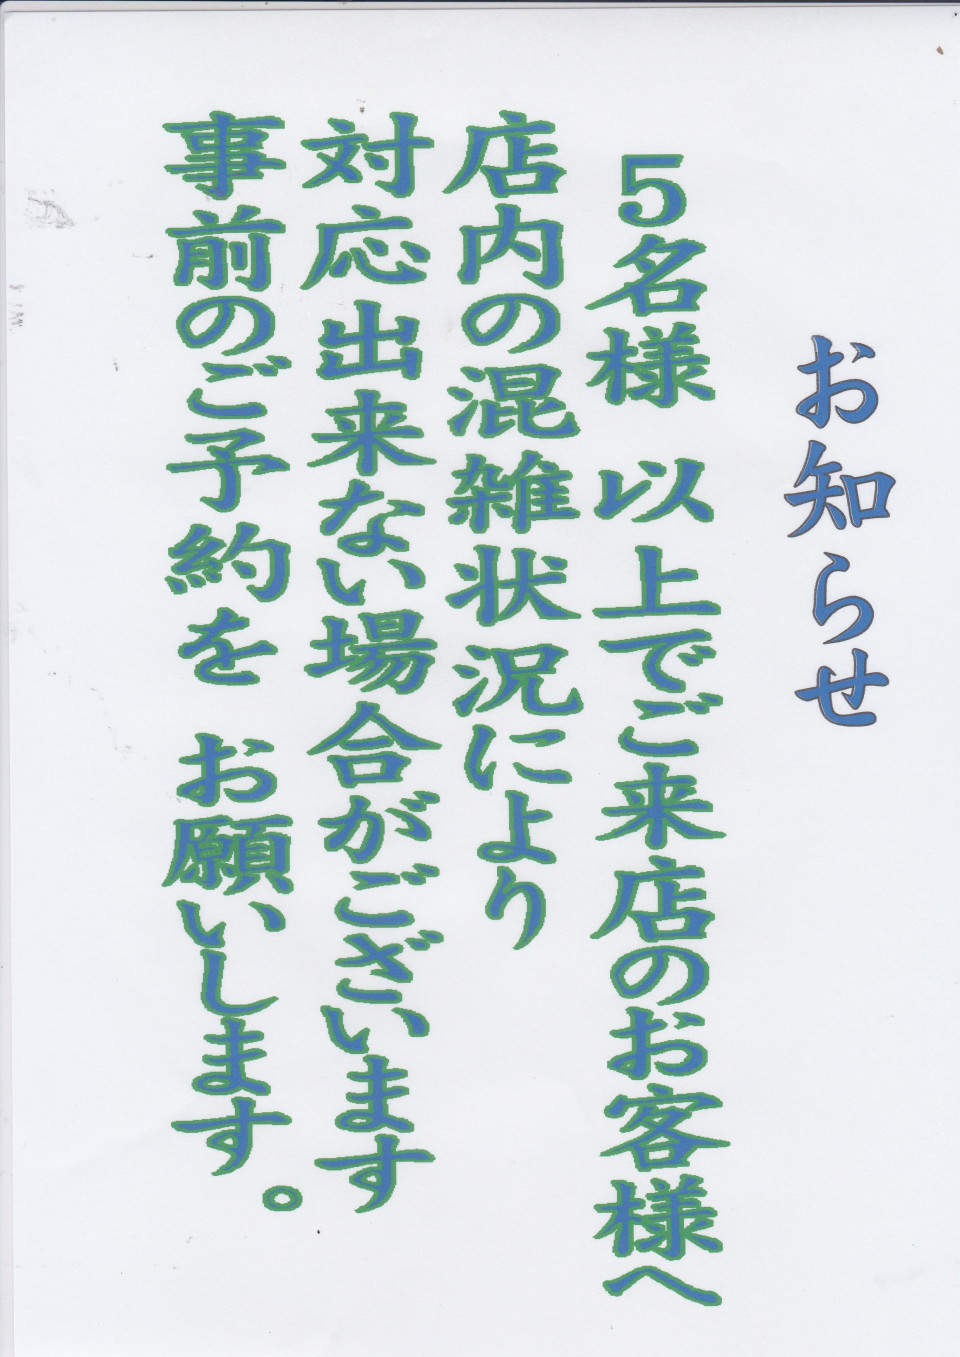 お知らせ
5名様 以上でご来店のお客様へ
店内の混雑状況により
対応出来ない場合がございます
事前のご予約を お願いします。